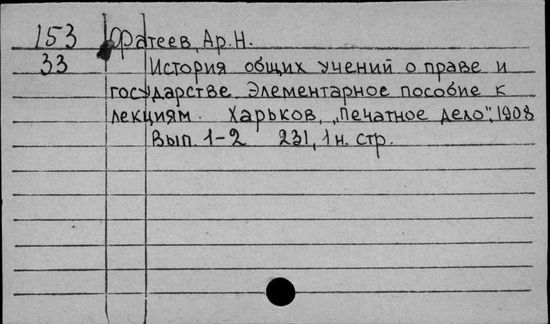 153 Фатеев, Ар. Н.
33 История общих учений о праве и
государстве. Элементарное пособие к
лекциям. Харьков, „Печатное дело“, 1908
Вып. 1-2 231, 1 н. стр.